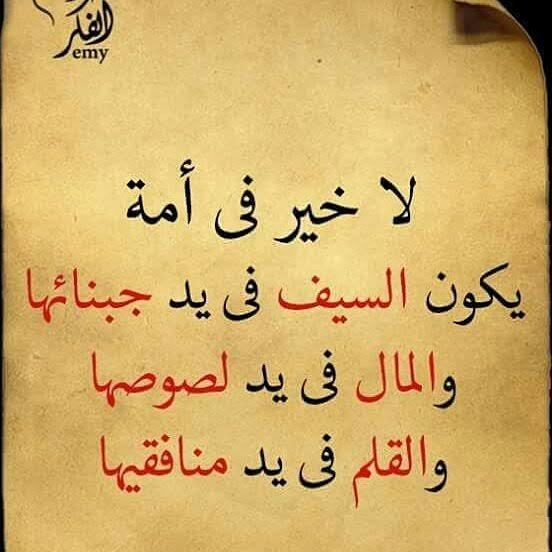 الفكر
emy
لا خير فى أمة
يكون السيف فى يد جبنائها
والمال فى يد لصوصها
والقلم فى يد منافقيها